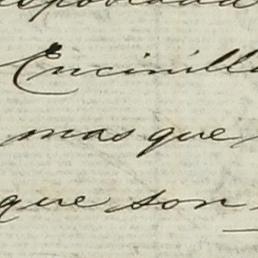 Encinill
mas que
que son